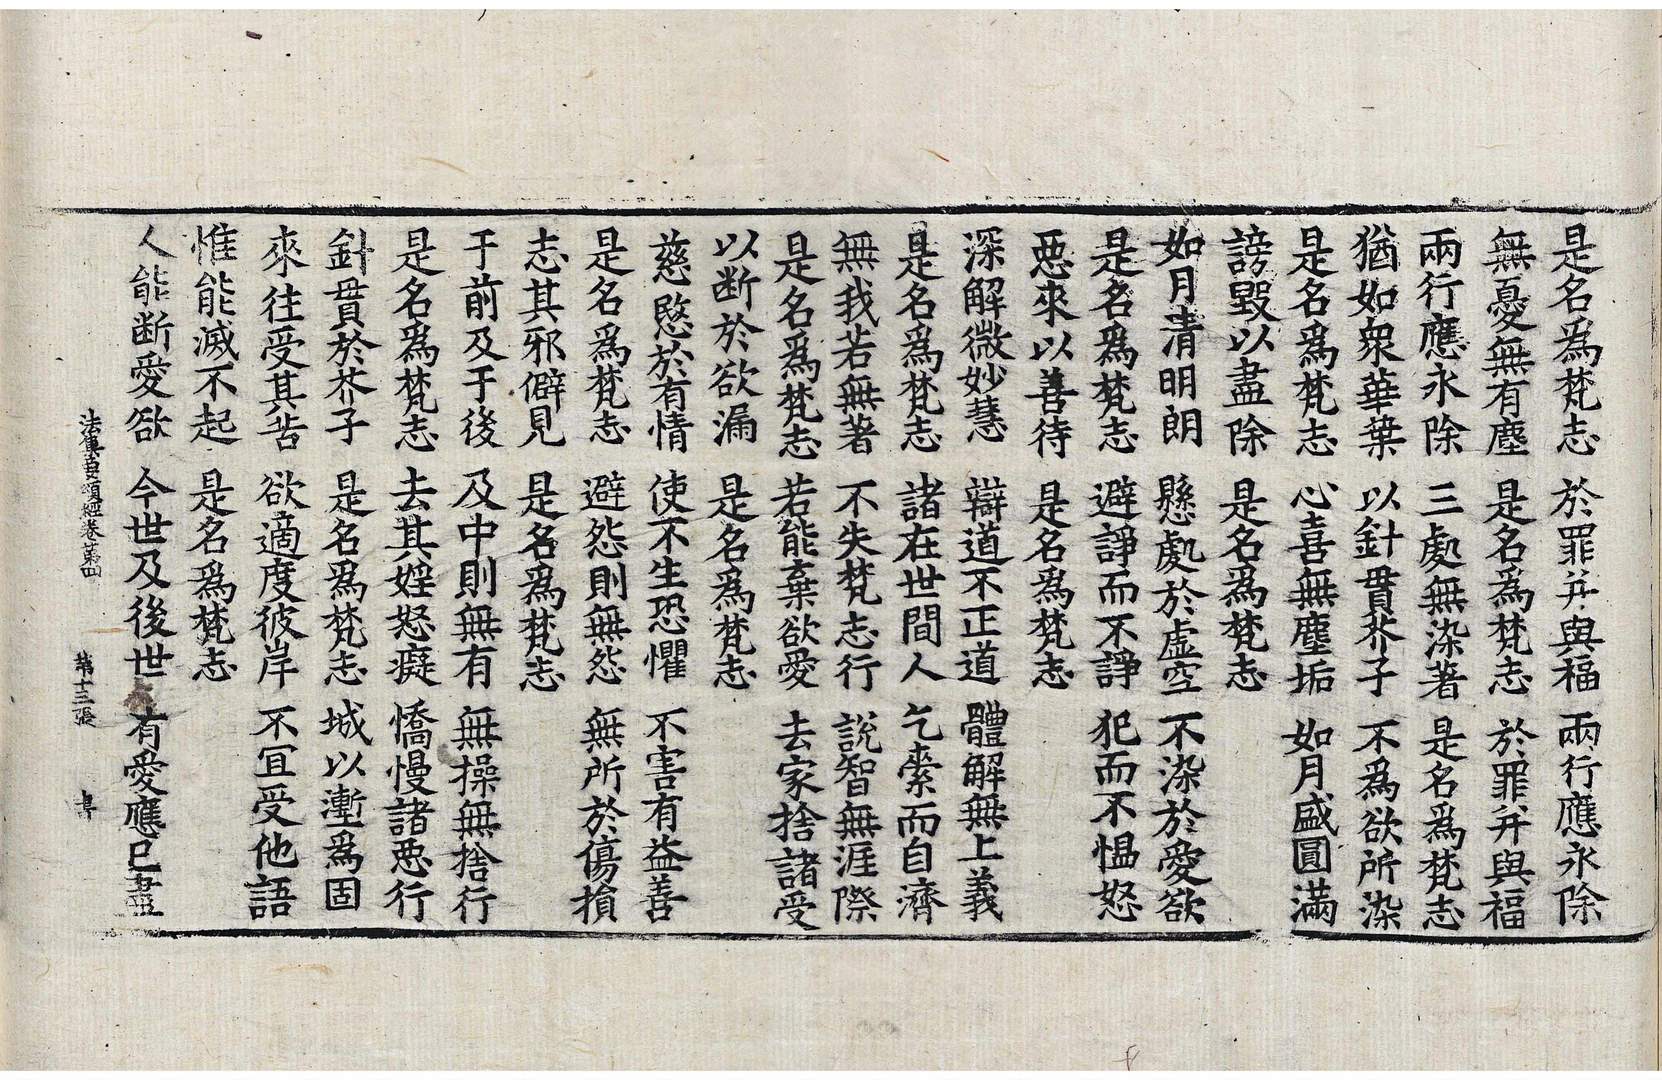 是名爲梵志　於罪幷與福　兩行應永除
無憂無有塵　是名爲梵志　於罪幷與福
兩行應永除　三處無染著　是名爲梵志
猶如衆華葉　以針貫芥子　不爲欲所染
是名爲梵志　心喜無塵垢　如月盛圓滿
謗毀以盡除　是名爲梵志
如月淸明朗　懸處於虛空　不染於愛欲
是名爲梵志　避諍而不諍　犯而不愠怒
惡來以善待　是名爲梵志
深解微妙慧　辯道不正道　體解無上義
是名爲梵志　諸在世間人　乞索而自濟
無我若無著　不失梵志行　說智無涯際
是名爲梵志　若能棄欲愛　去家捨諸受
以断於欲漏　是名爲梵志
慈愍於有情　使不生恐懼　不害有益善
是名爲梵志　避怨則無怨　無所於傷損
志其邪僻見　是名爲梵志
于前及于後　及中則無有　無操無捨行
是名爲梵志　去其婬怒癡　憍慢諸惡行
針貫於芥子　是名爲梵志　城以塹爲固
來往受其苦　欲適度彼岸　不宜受他語
惟能滅不起　是名爲梵志
人能断愛欲　今世及後世　有愛應已盡
法集要頌經卷第四　第十三張